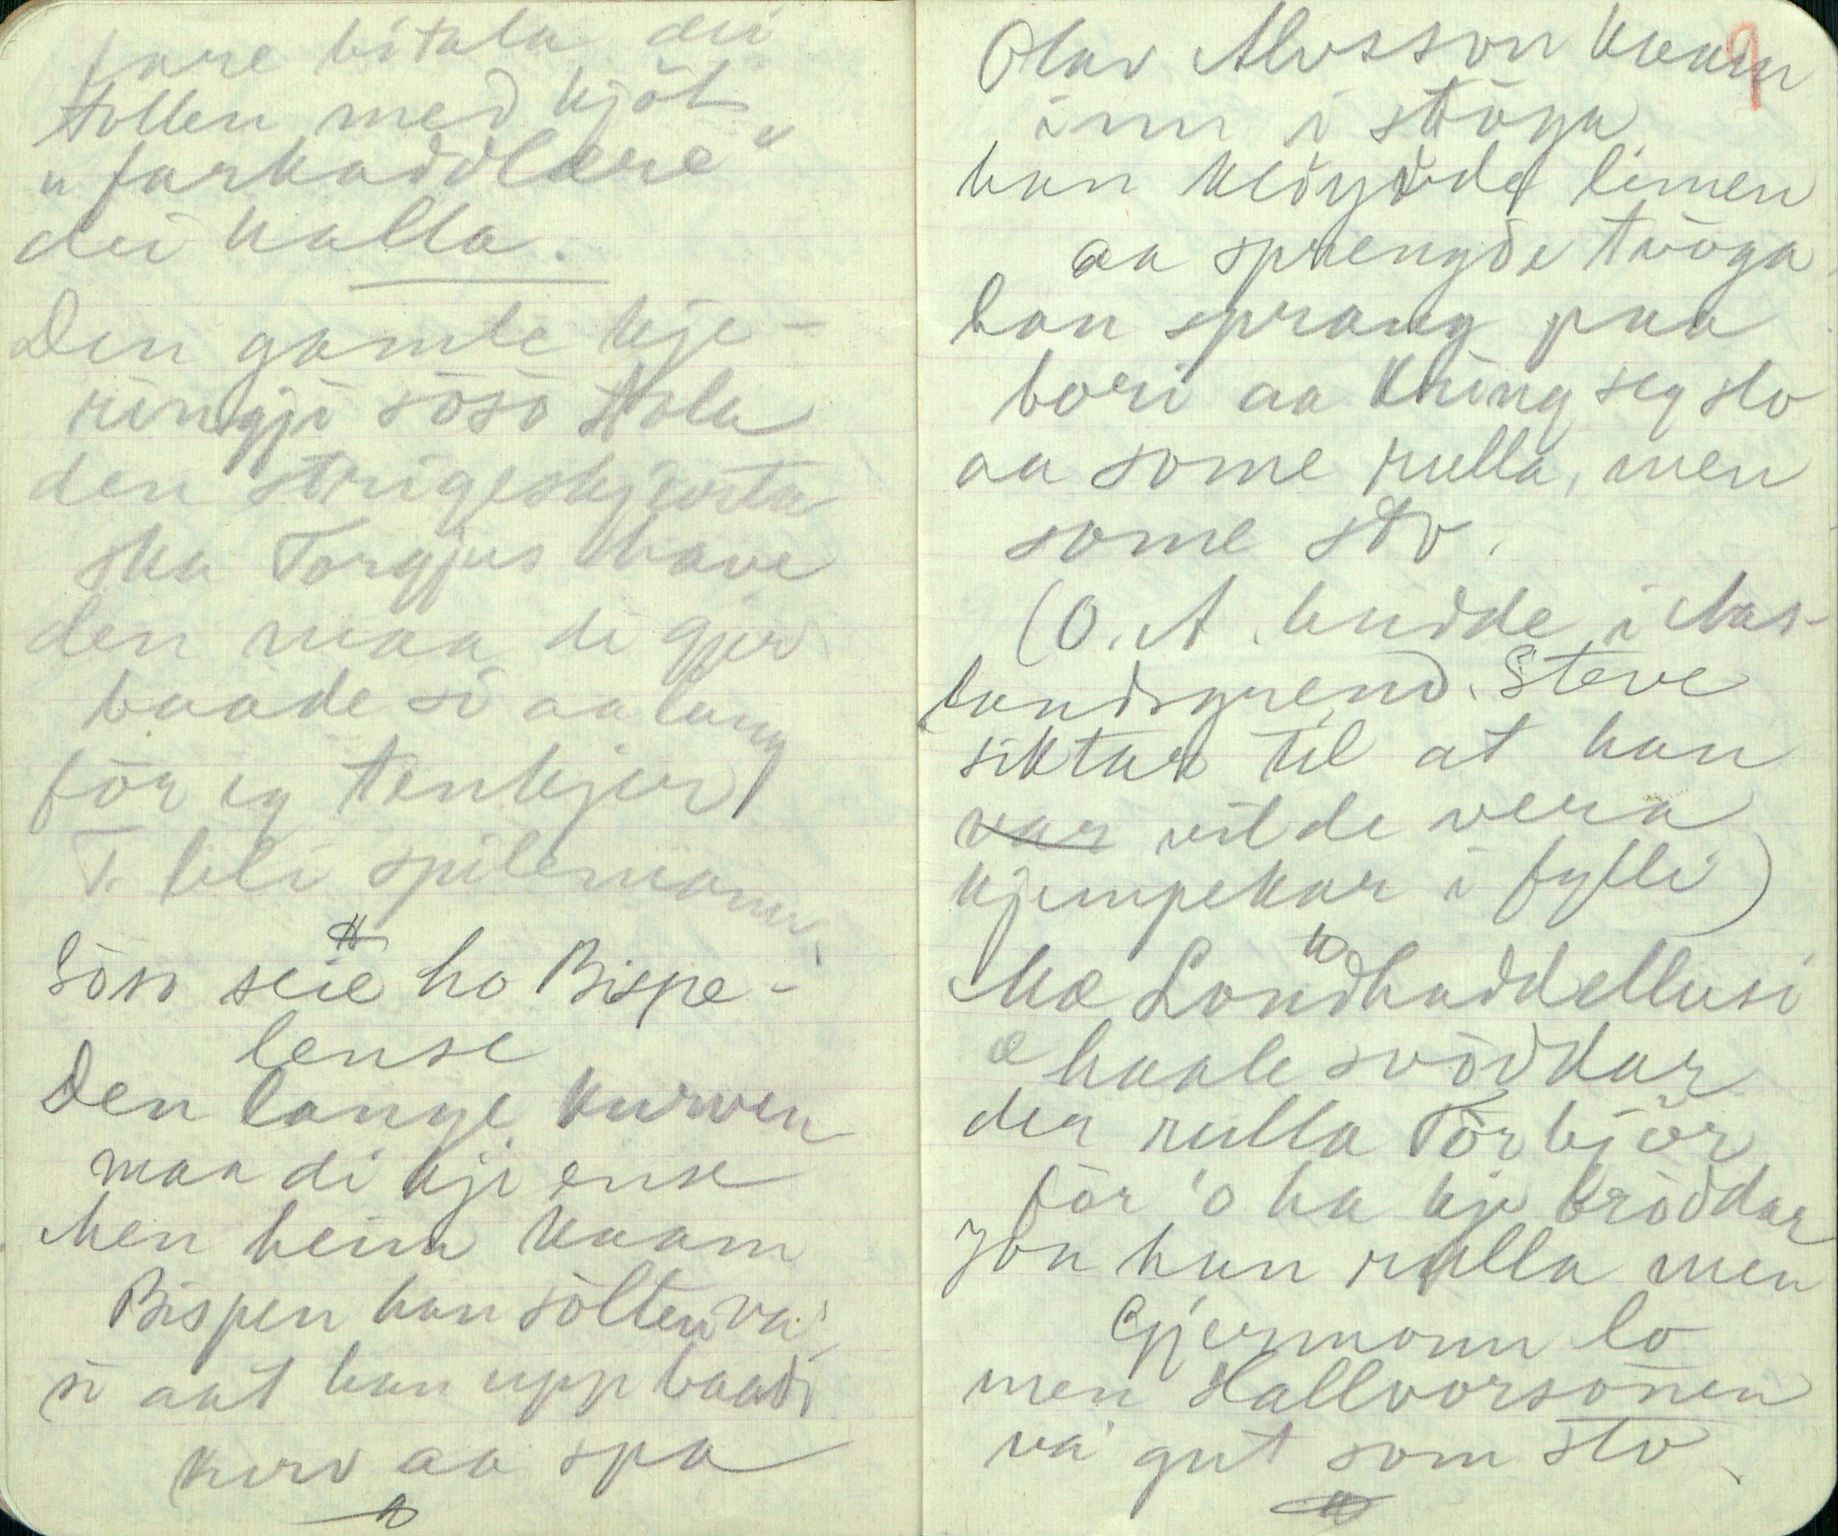 fare bitala dei
tollen med kjöt
"farkaddlære"
dei kalla.
Den gamle kje-
ringji söso tola
den strigeskjorta
ska Torgjus have
den maa di gjer
baade si aa lang
för eg tenkjer
T. bli spilemann.
Söso seie ho Bispe-
lense
Den lange kurven
maa di kji ense
Men heim kaam
Bispen han sölten va'
si aat han upp baadi
kurv aa spa
9
Olav Alvsson kvam
inn i stöga
han limen
aa sprengde tvöga
han sprang paa
bori aa kring seg slo
aa some rulla, men
some sto.
(O. A. budde i Aas-
landsgrend. Steve
siktar til at han
var vilde vera
kjempekar i fylli)
Mæ
æ haale svöddar
der rulla Törbjör
för 'o ha kje bröddar
Jon han rulla men
Gjermonn lo
men Hallvorsönen
va' gut som sto.